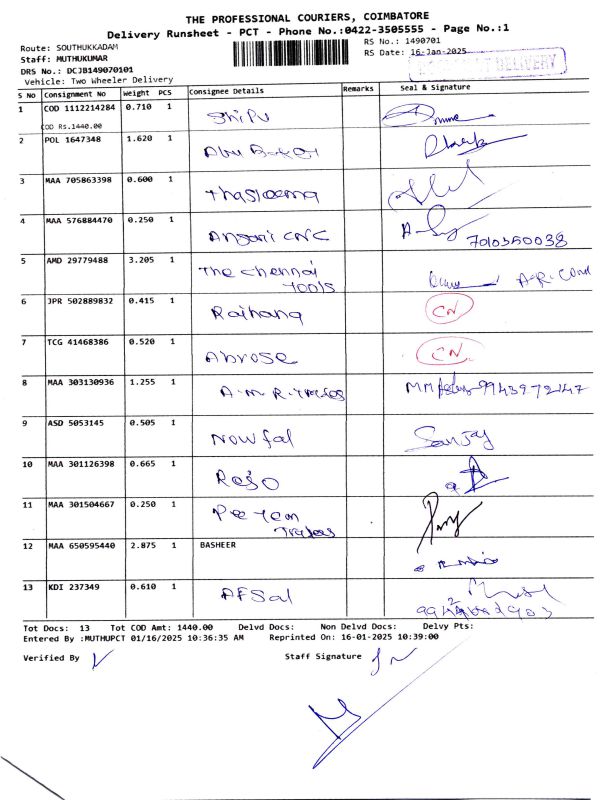 THE PROFESSIONAL COURIERS, COIMBATORE
Delivery Runsheet - PCT - Phone No.:0422-3505555 - Page No.:1
Route: SOUTHUKKADAM
RS No.: 1490701
Staff: MUTHUKUMAR
RS Date: 16-Jan-2025
DRS No.: DCJB149070101
DELIVERY
Vehicle: Two Wheeler Delivery
S No Consignment No Weight PCS Consignee Details Remarks Seal & Signature
1 COD 1112214284 0.710 1 Shipu
COD Rs.1440.00
2 POL 1647348 1.620 1
3 MAA 705863398 0.600 1 Thasleema
4 MAA 576884470 0.250 1 Ansari CNC 7010350038
5 AMD 29779488 3.205 1 The Chennai Tools
6 JPR 502889832 0.415 1 Raihana CN
7 TCG 41468386 0.520 1 Abrose CN
8 MAA 303130936 1.255 1 A.M.R. Trades 9943972147
9 ASD 5053145 0.505 1 Nowfal Sanjay
10 MAA 301126398 0.665 1
11 MAA 301504667 0.250 1
12 MAA 650595440 2.875 1 BASHEER
13 KDI 237349 0.610 1 AFSal
Tot Docs: 13 Tot COD Amt: 1440.00 Delvd Docs: Non Delvd Docs: Delvy Pts:
Entered By :MUTHUPCT 01/16/2025 10:36:35 AM Reprinted On: 16-01-2025 10:39:00
Verified By Staff Signature